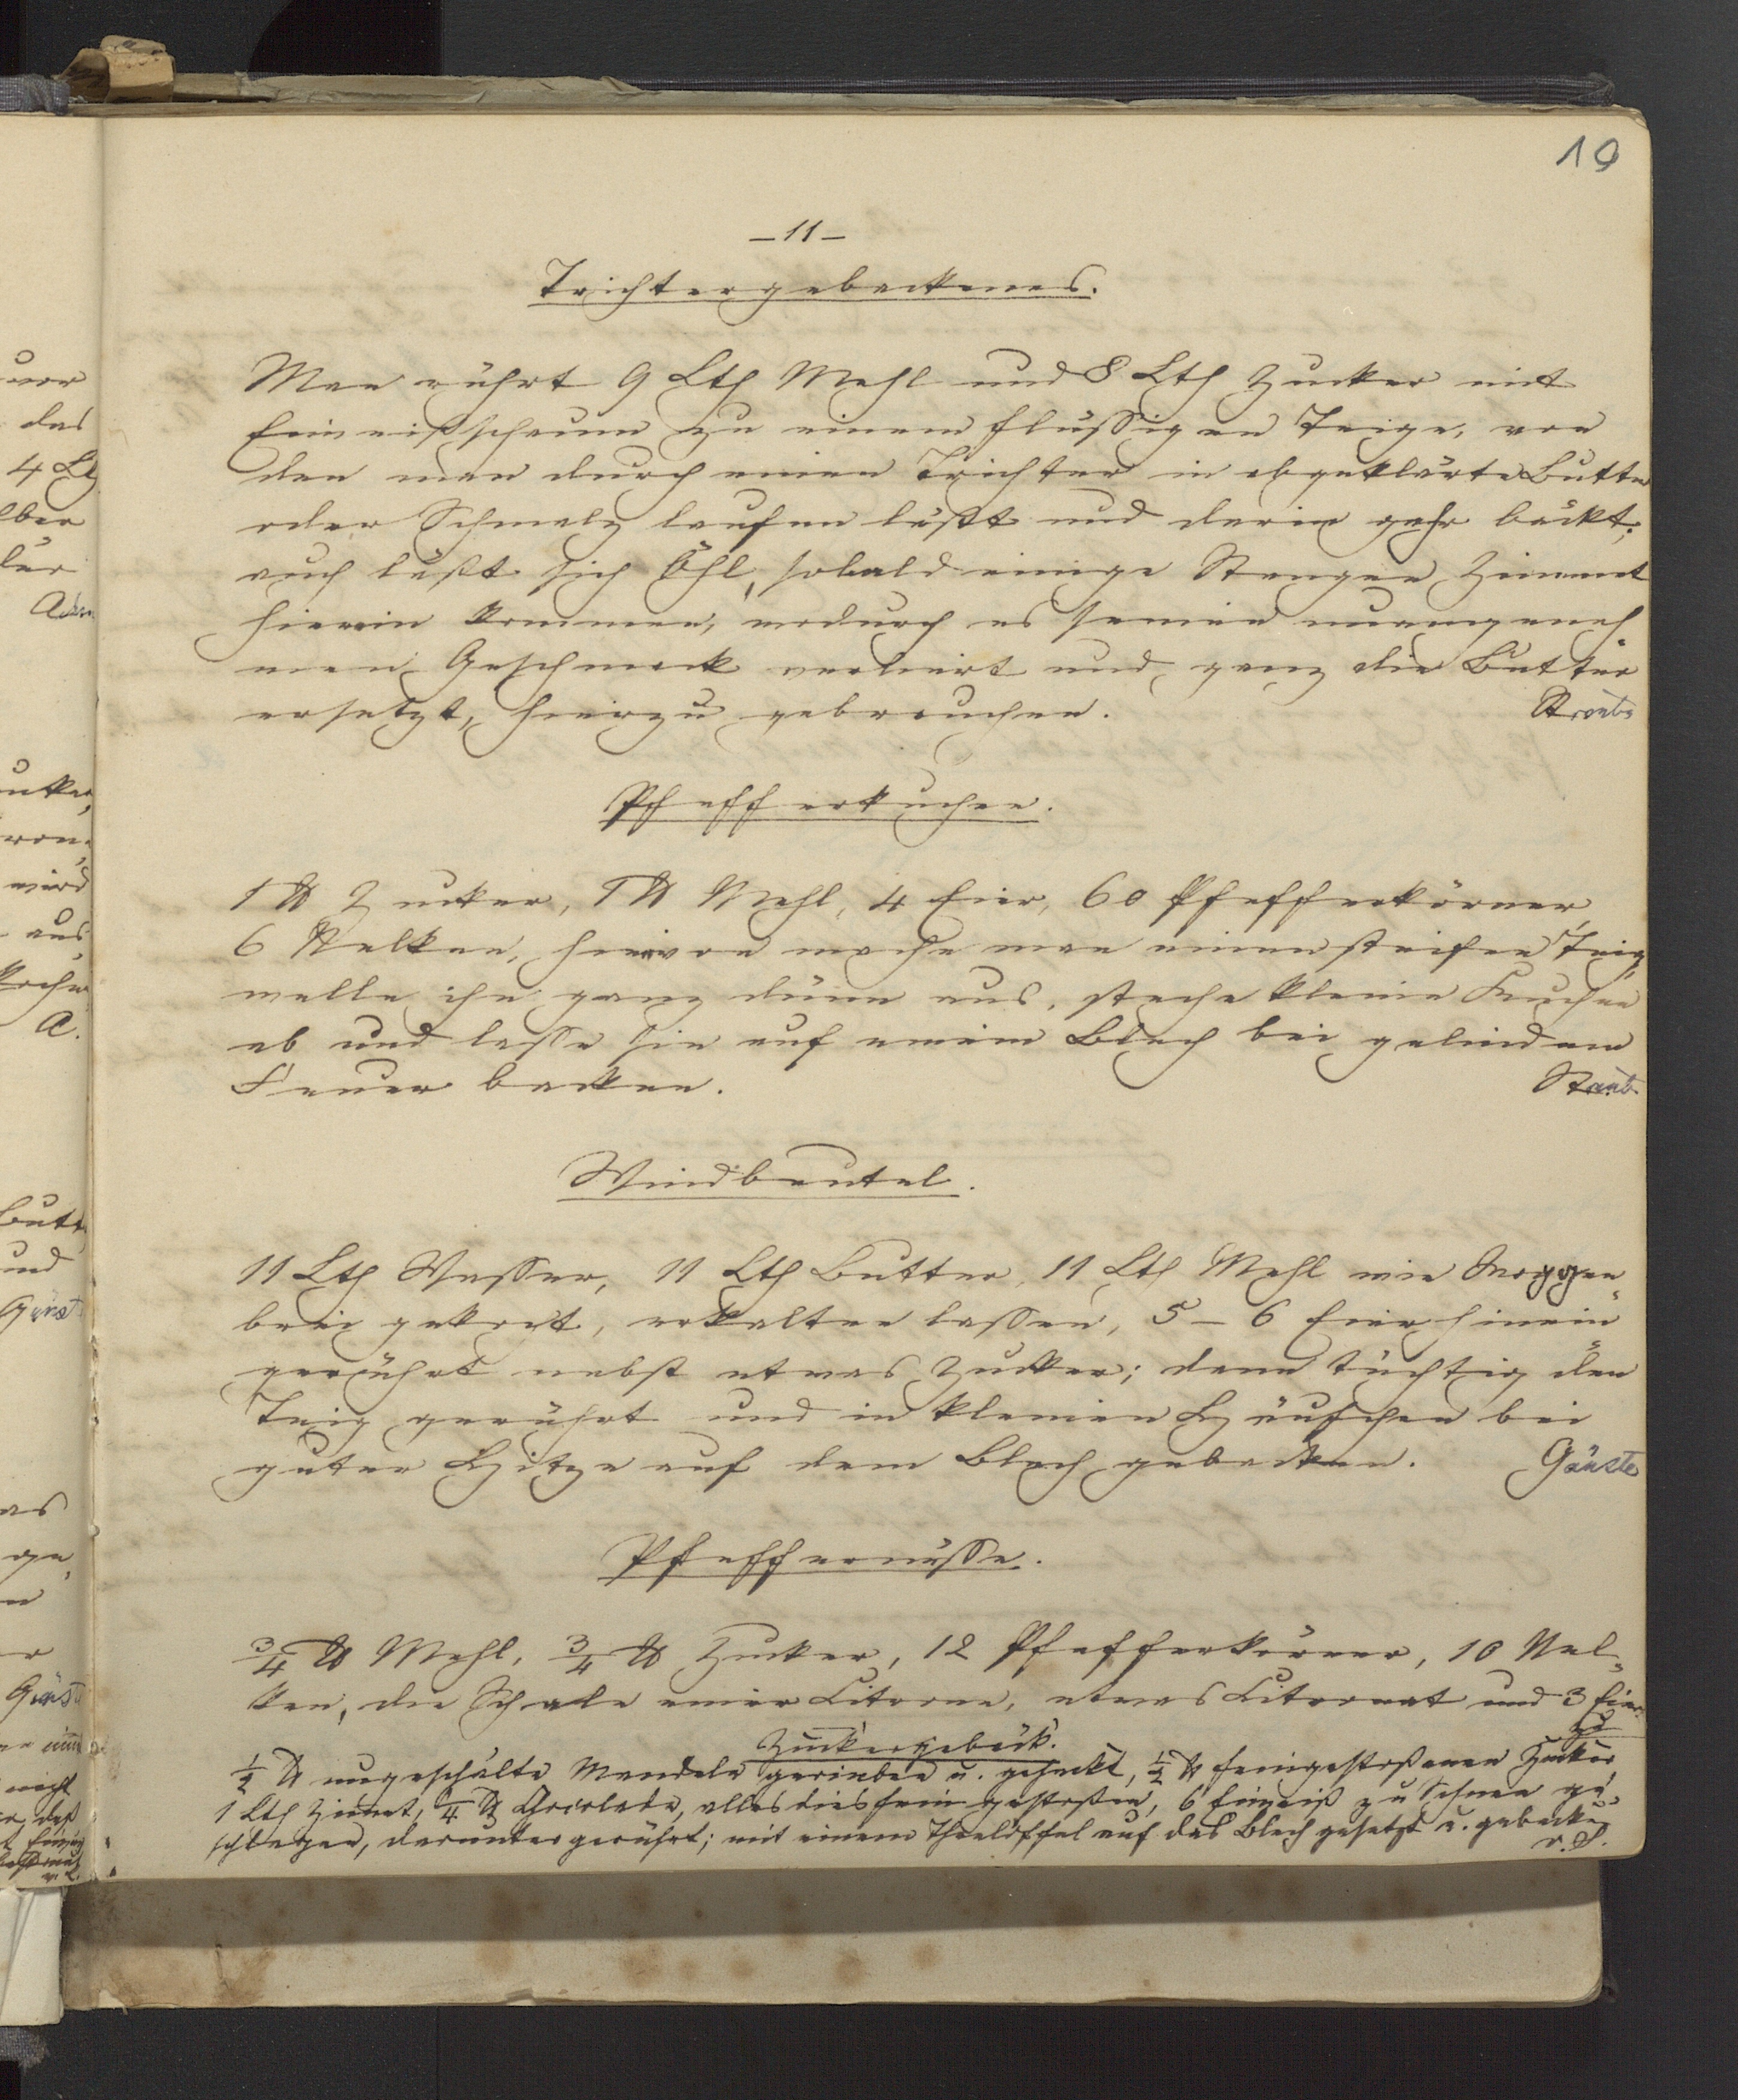 10
– 11 –
Trichtergebackenes.
Man rührt 9 Lth Mehl und 8 Lth Zucker mit
Eiweißschaum zu einem flüssigen Teige, von
den man durch einen Trichter in abgeklärte Butter
oder Schmalz laufen läßt und darin gahr bäckt;
auch läßt sich Öhl, sobald einige Stangen Zimmet
hierein kommen, wodurch es seinen unangeneh„
men Geschmack verliert und ganz die Butter
ersetzt, hierzu gebrauchen.
Pfefferkuchen.
1 ℔ Zucker, 1 ℔ Mehl, 4 Eier, 60 Pfefferkörner,
6 Nelken, hiervon mache man einen steifen Teig,
welle ihn ganz dünn aus, steche kleine Kuchen
ab und lasse sie auf einem Blech bei gelindem
Feuer backen.
Windbeutel.
11 Lth Wasser, 11 Lth Butter, 11 Lth Mehl wie Moggen„
brei gekocht, erkalten lassen, 5 – 6 Eier hinein
gerührt nebst etwas Zucker; dann tüchtig den
Teig gerührt und in kleinen Häufchen bei
guter Hitze auf dem Blech gebacken.
Pfeffernüsse.
3/4 ℔ Mehl, 3/4 ℔ Zucker, 12 Pfefferkörner, 10 Nel„
ken, die Schale einer Citrone, etwas Citronat und 3 Eier.
Zuckergebäck.
1/2 ℔ ungeschälte Mandeln gerieben u. gehackt, 1/2 ℔ feingestoßenen Zucker,
1 Lth Zimmt, 1/4 ℔ Chocolade, alles dies fein gestoßen, 6 Eiweiß zu Schnee ge„
schlagen, darunter gerührt; mit einem Theelöffel auf das Blech gesetzt u. gebacken